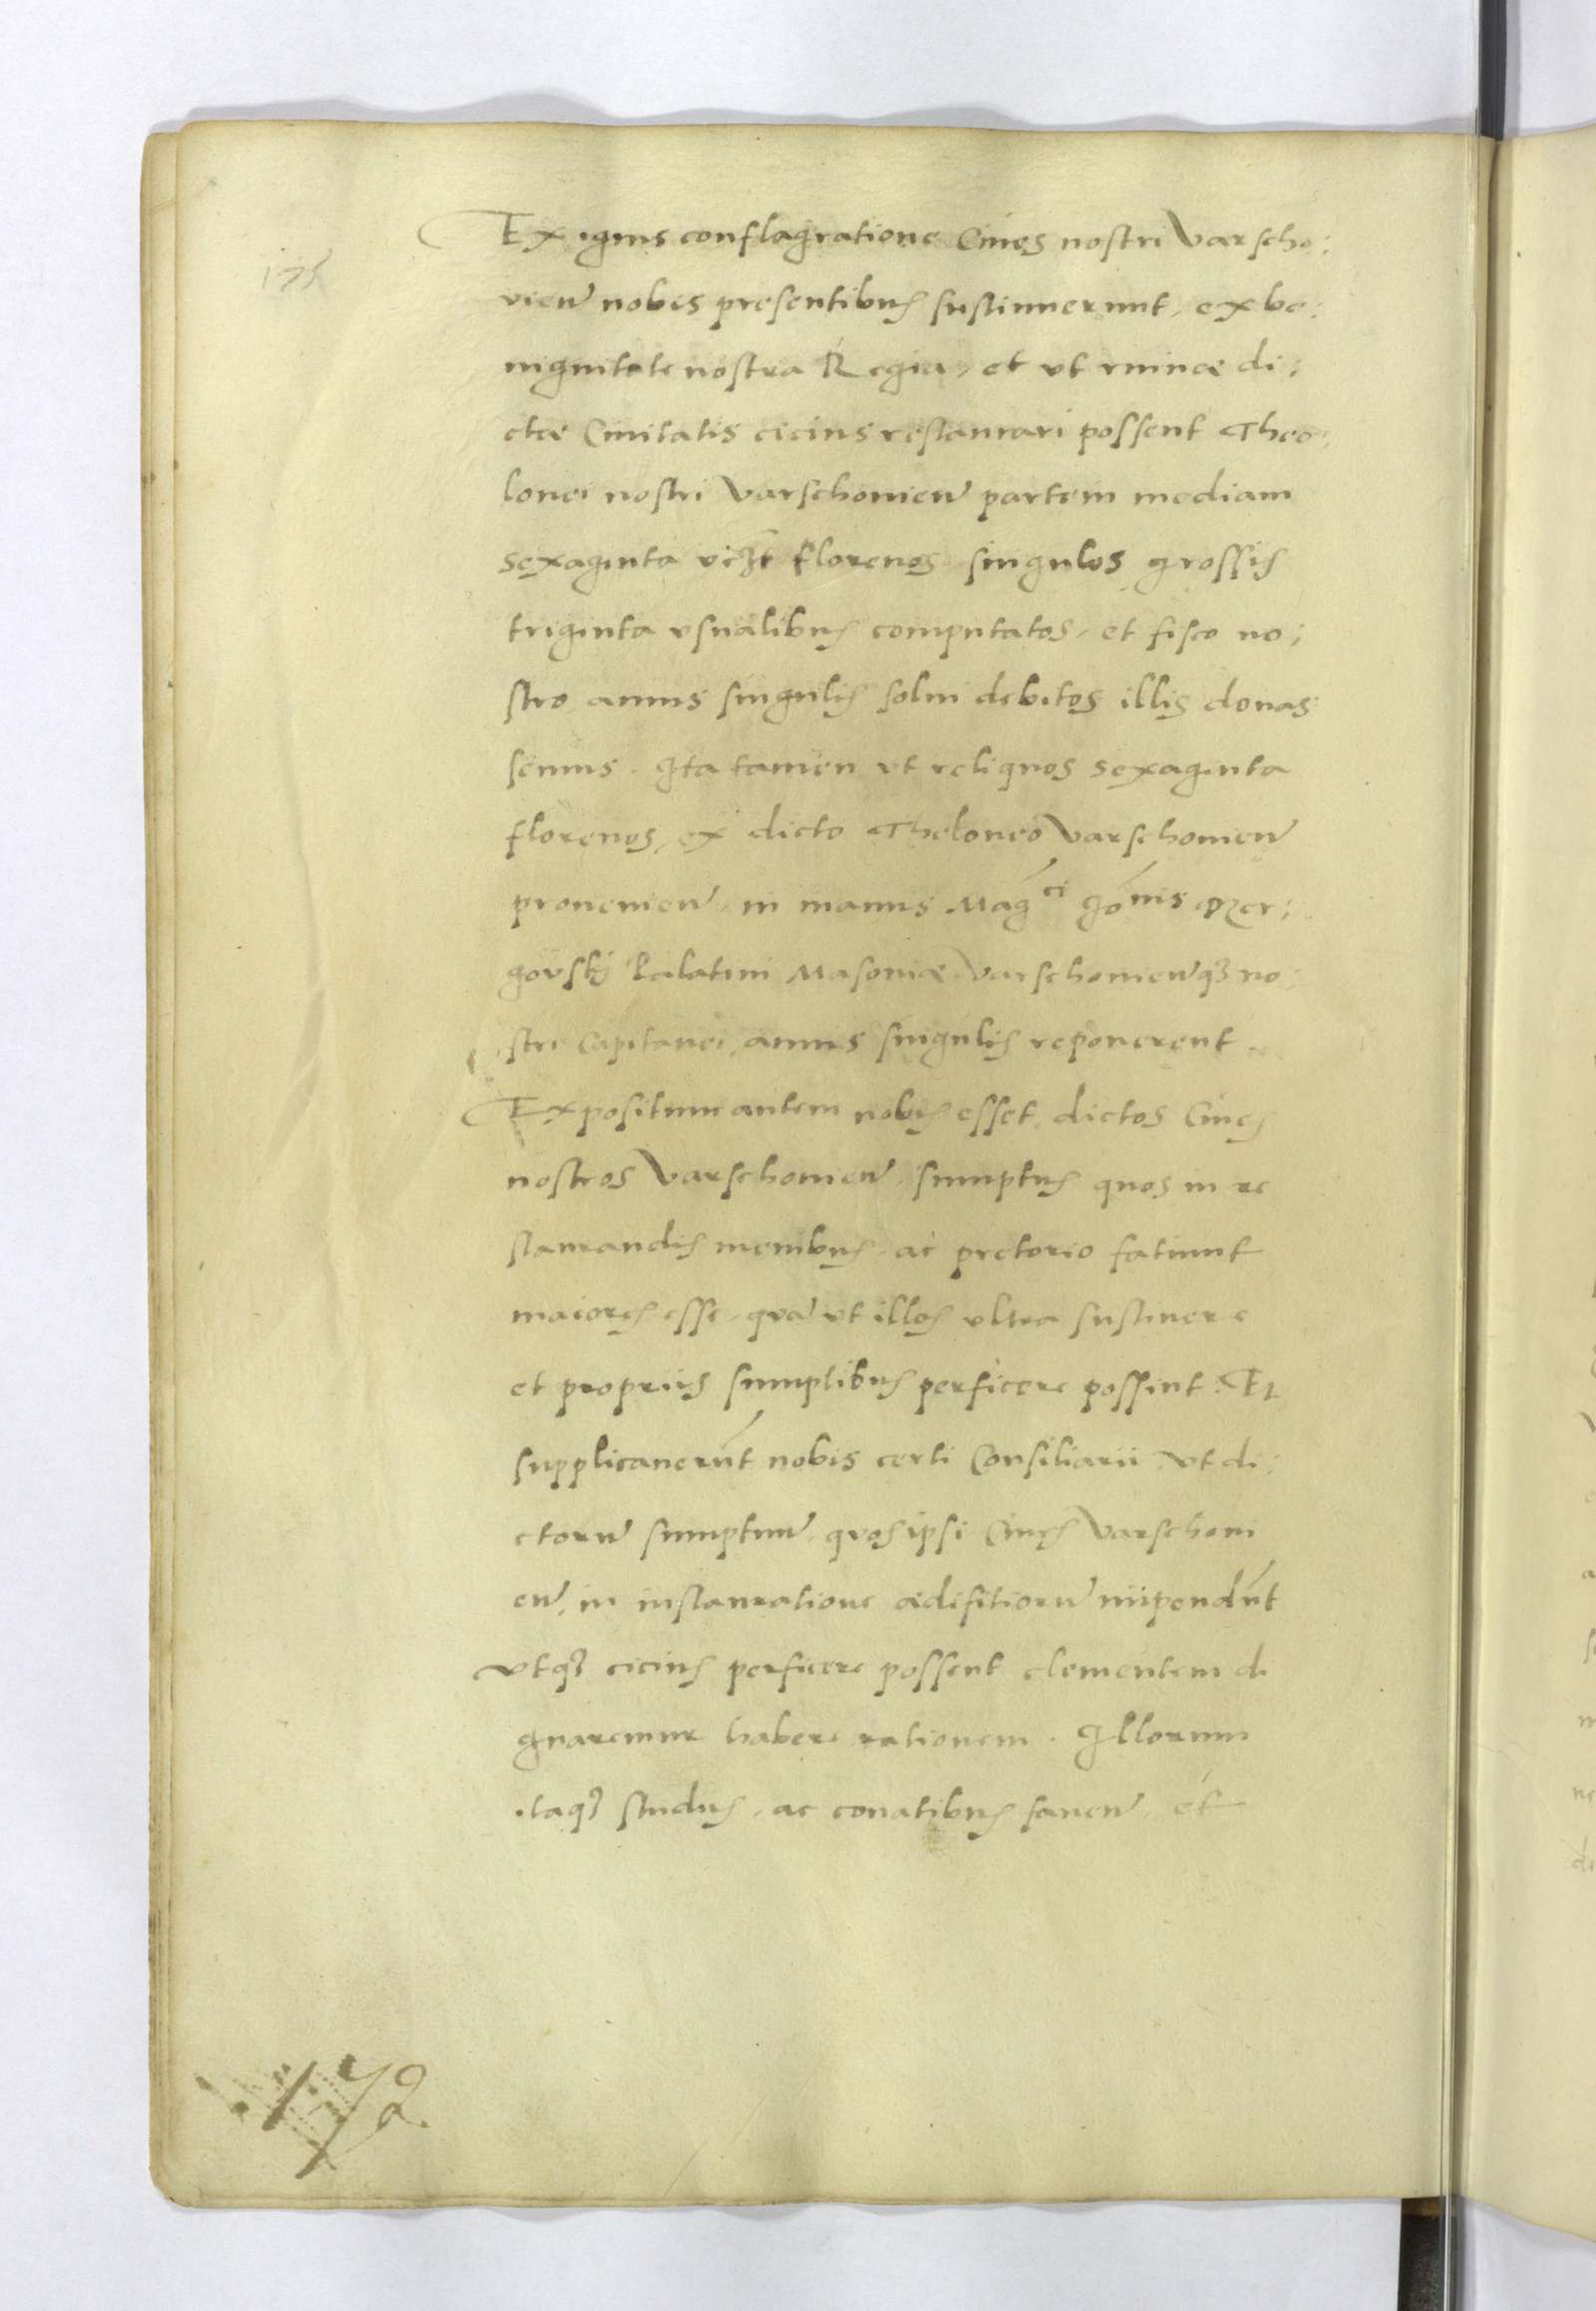 Ex ignis conflagratione Ciues nostri Varscho:
vien̄ nobis presentibus sustinuerunt, ex be:
nignitate nostra Regia, et vt ruinæ di:
ctæ Ciuitatis cicius restaurari possent Theo:
lonei nostri Varschouien̄ partem mediam
sexaginta vicȝt florenos singulos grossis
triginta vsualibus computatos, et fisco no:
stro annis singulis solui debitos illis donas
semus. Ita tamen vt reliquos sexaginta
florenos, ex dicto Theloneo Varschouien̄
prouenien̄, in manus Mag^ci Io͞nis Dzer:
govskij Palatini Masouiæ Varschouien̄qȝ no:
stri Capitanei, annis singulis reponerent
Expositum autem nobis esset, dictos Ciues
nostros Varschouien̄, sumptus quos in re
staurandis menibus, ac pretorio fatiunt
maiores esse, qua̅ vt illos vltra sustinere
et proprijs sumptibus perficere possint. Et
supplicauerūt nobis certi Consiliarii vt di:
ctorum̄ sumptuum̄, quos ipsi Ciues Varschoui
en̄, in instauratione ædifitioru̅ impendūt
vtqȝ cicius perficere possent clementem di
gnaremur habere rationem. Illorum
itaqȝ studijs, ac conatibus fauen̄, et
172.